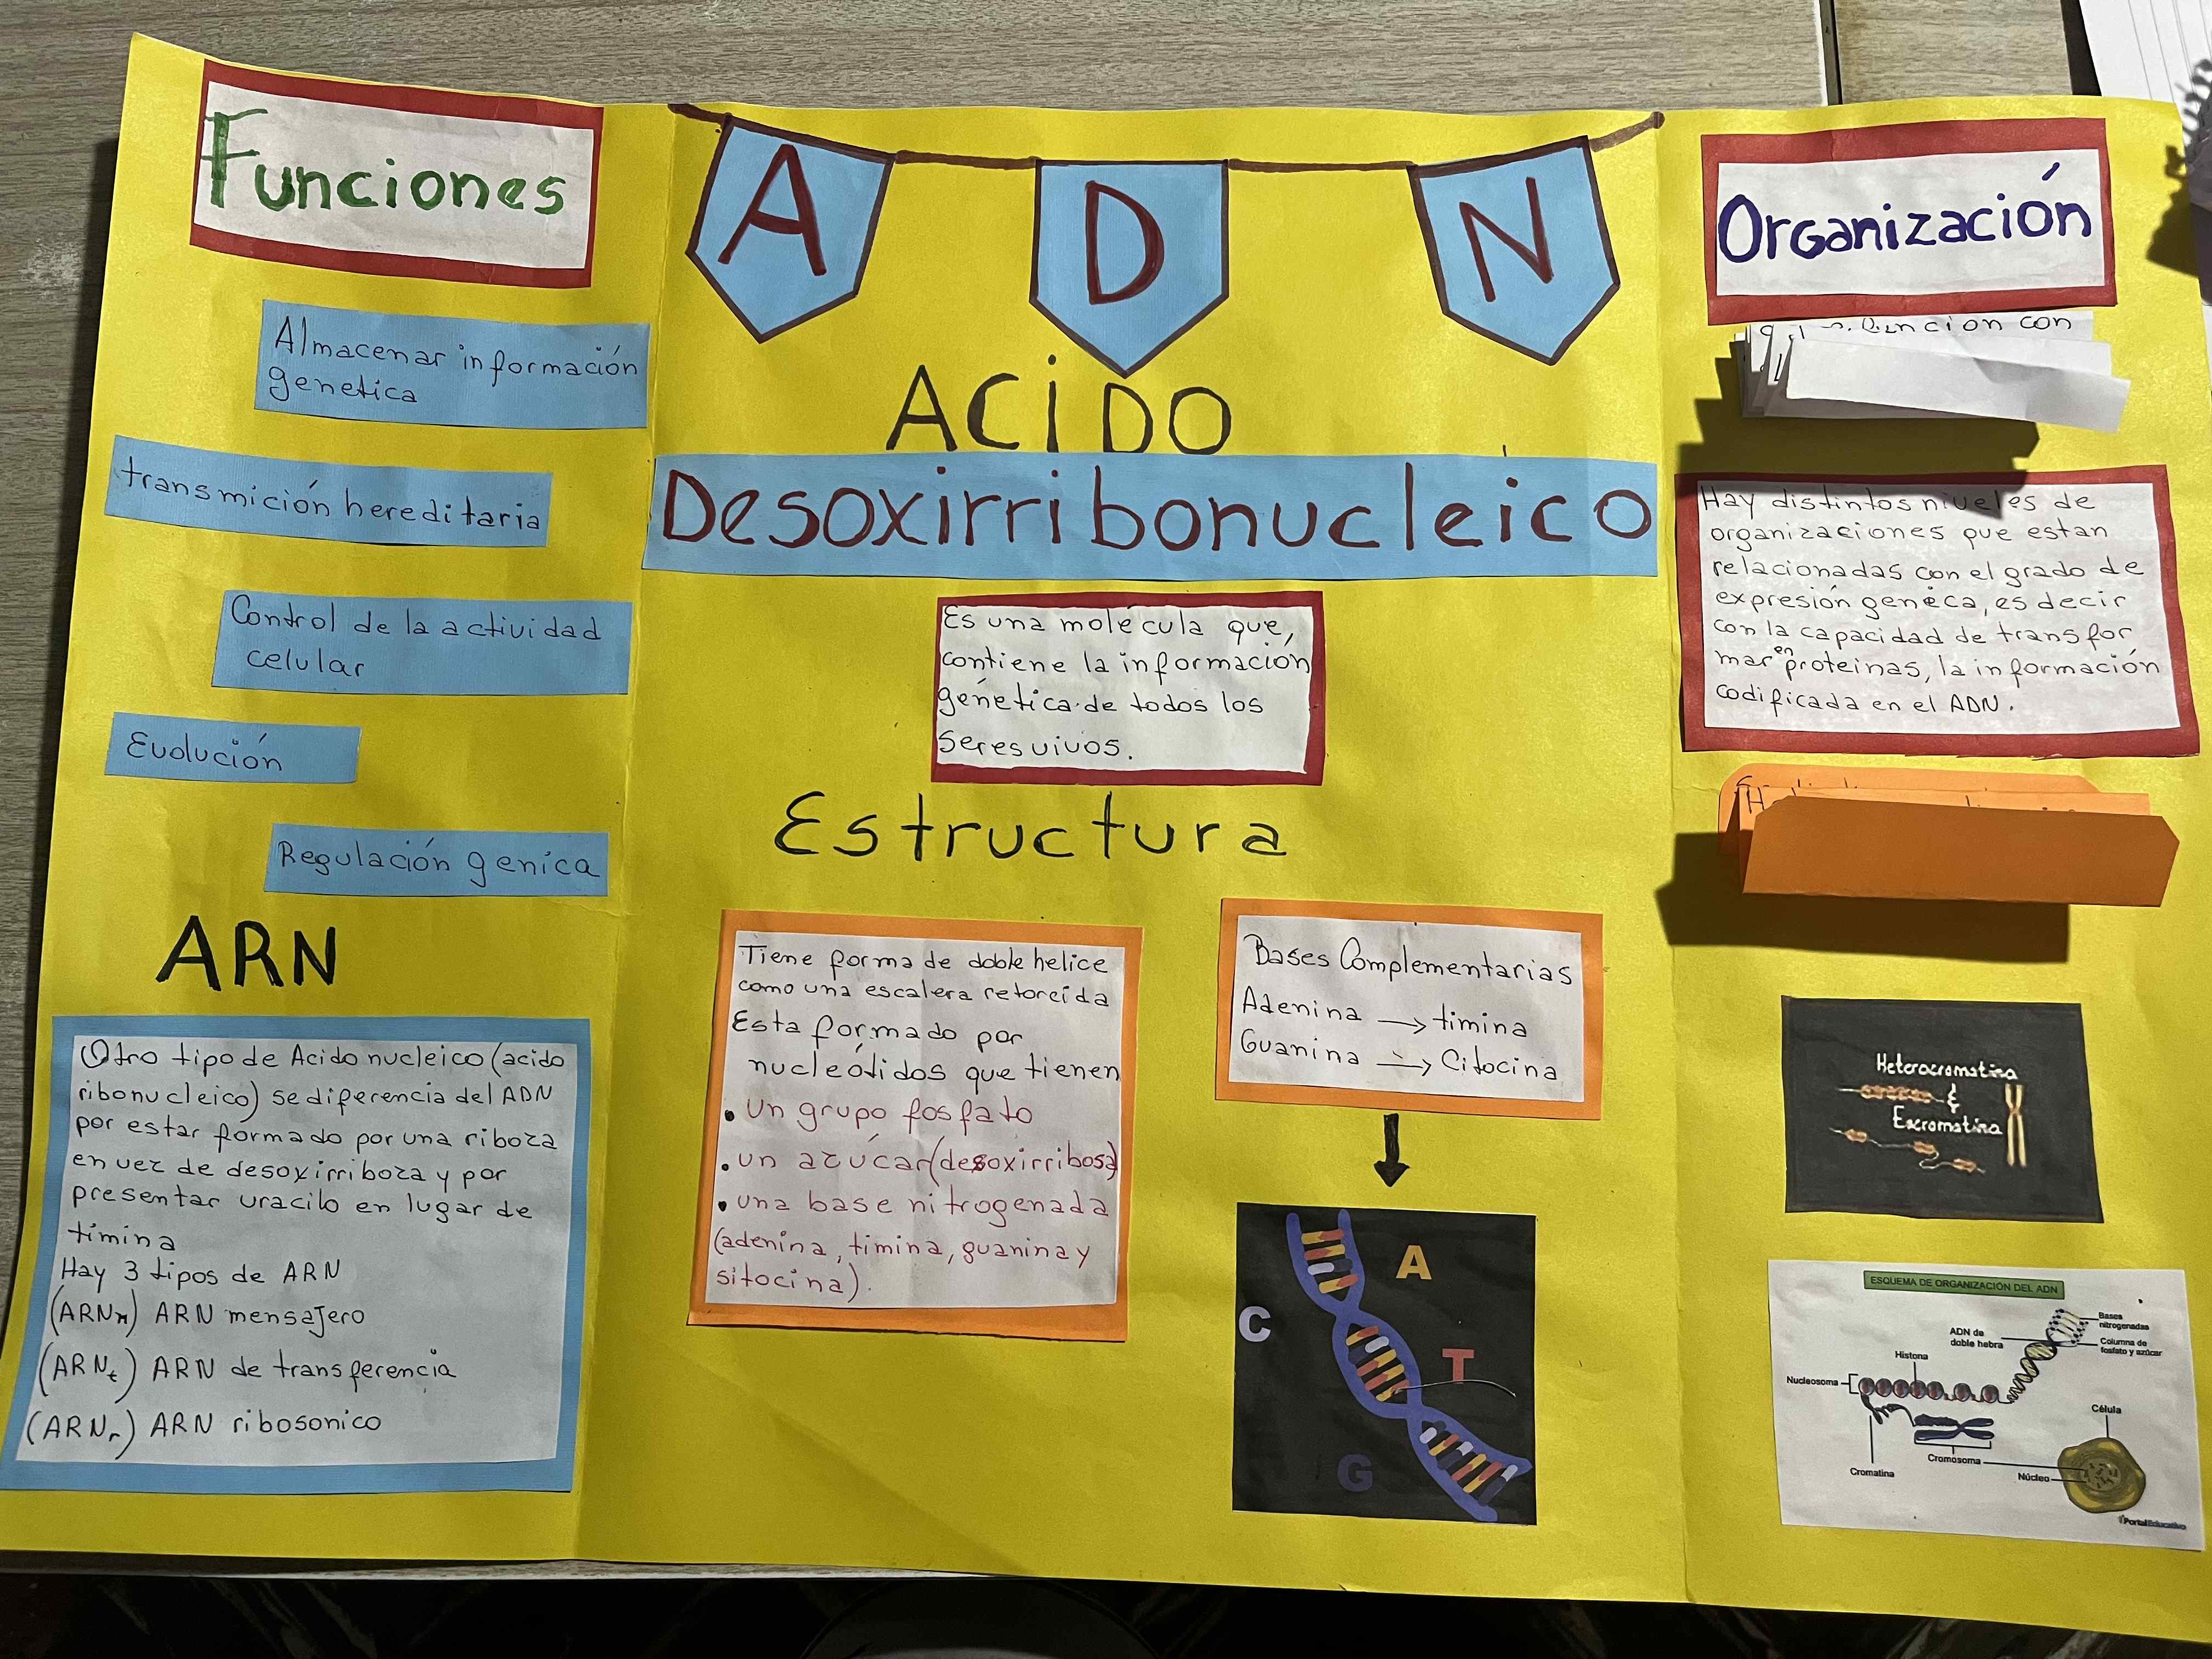 Funciones
Almacenar información
genetica
transmición hereditaria
Control de la actividad
celular
Evolución
Regulación genica
ARN
Otro tipo de Acido nucleico (acido
ribonucleico) se diferencia del ADN
por estar formado por una riboza
en vez de desoxirriboza y por
presentar uracilo en lugar de
timina
Hay 3 tipos de ARN
(ARNm) ARN mensajero
(ARNt) ARN de transferencia
(ARNr) ARN ribosonico
A D N
ACIDO
Desoxirribonucleico
Es una molécula que,
contiene la información
genética de todos los
seres vivos.
Estructura
Tiene forma de doble helice
como una escalera retorcida
Esta formado por
nucleótidos que tienen
• un grupo fosfato
• un azúcar (desoxirribosa)
• una base nitrogenada
(adenina, timina, guanina y
sitocina).
Bases Complementarias
Adenina → timina
Guanina → Citocina
A
C
T
G
Organización
con
Hay distintos niveles de
organizaciones que estan
relacionadas con el grado de
expresión genéca, es decir
con la capacidad de transfor
mar en proteinas, la información
codificada en el ADN.
Heterocromatina
&
Eucromatina
ESQUEMA DE ORGANIZACIÓN DEL ADN
Bases
nitrogenadas
ADN de
doble hebra
Columna de
fosfato y azúcar
Histona
Nucleosoma
Célula
Cromosoma
Cromatina
Núcleo
PortalEducativo